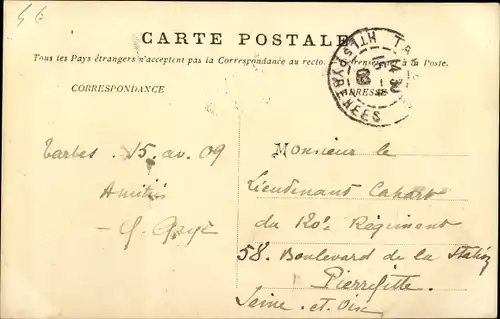 46
CARTE POSTALE
Tous les Pays étrangers n'acceptent pas la Correspondance au recto. à la Poste.
CORRESPONDANCE
HTES PYRENEES
Tarbes 15. av. 09
Amitiés
Monsieur le
Lieutenant
du 120e Régiment
58. Boulevard de la Station
Pierrefitte
Seine-et-Oise